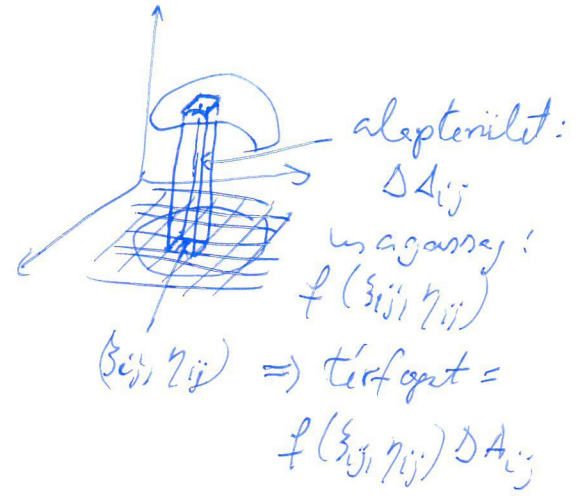 alapterület:
ΔA_{ij}
magasság:
f(ξ_{ij}, η_{ij})
(ξ_{ij}, η_{ij}) => térfogat =
f(ξ_{ij}, η_{ij}) ΔA_{ij}